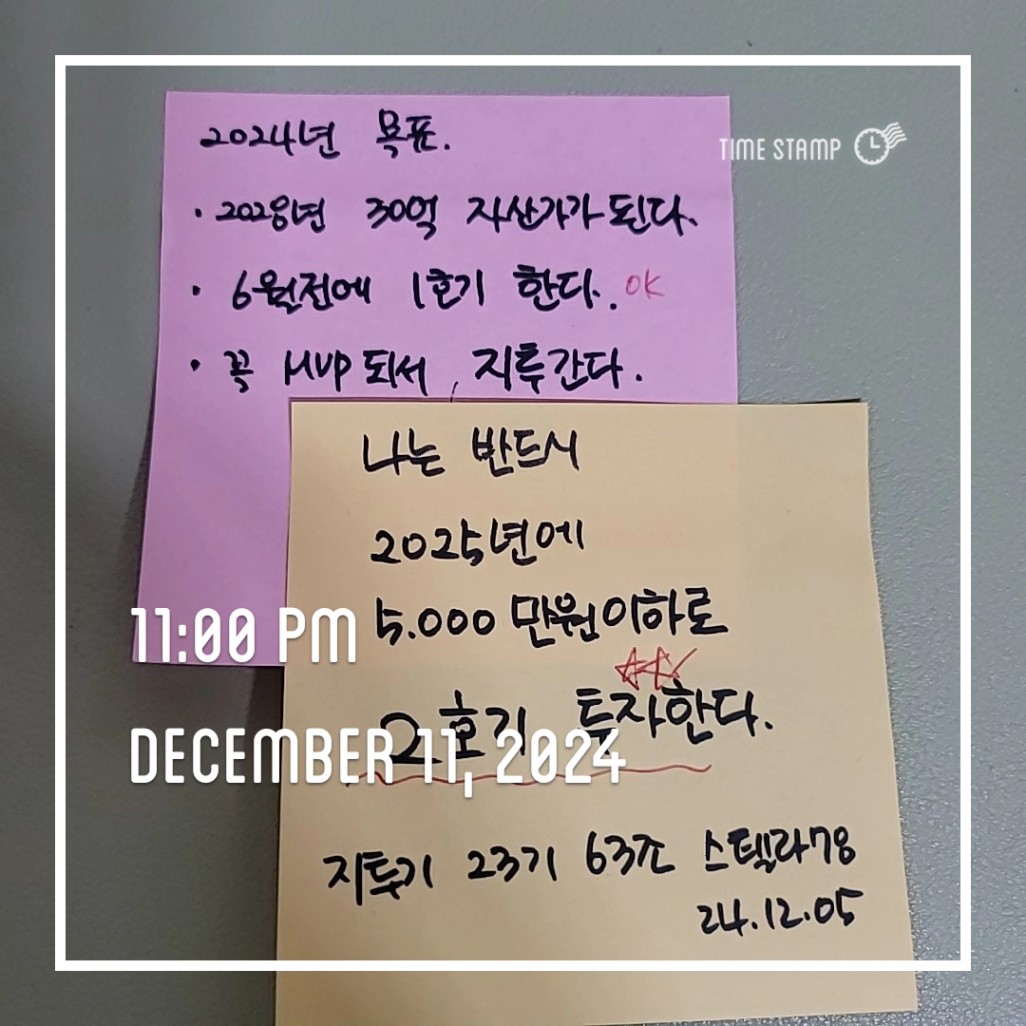 2024년 목표.
TIME STAMP
· 2028년 30억 자산가가 된다.
· 6월전에 1호기 한다. OK
· 꼭 MVP 되서, 지투간다.
나는 반드시
2025년에
5.000 만원이하로
11:00 PM
2호기 투자한다.
DECEMBER 11, 2024
지투기 23기 63조 스텔라78
24.12.05